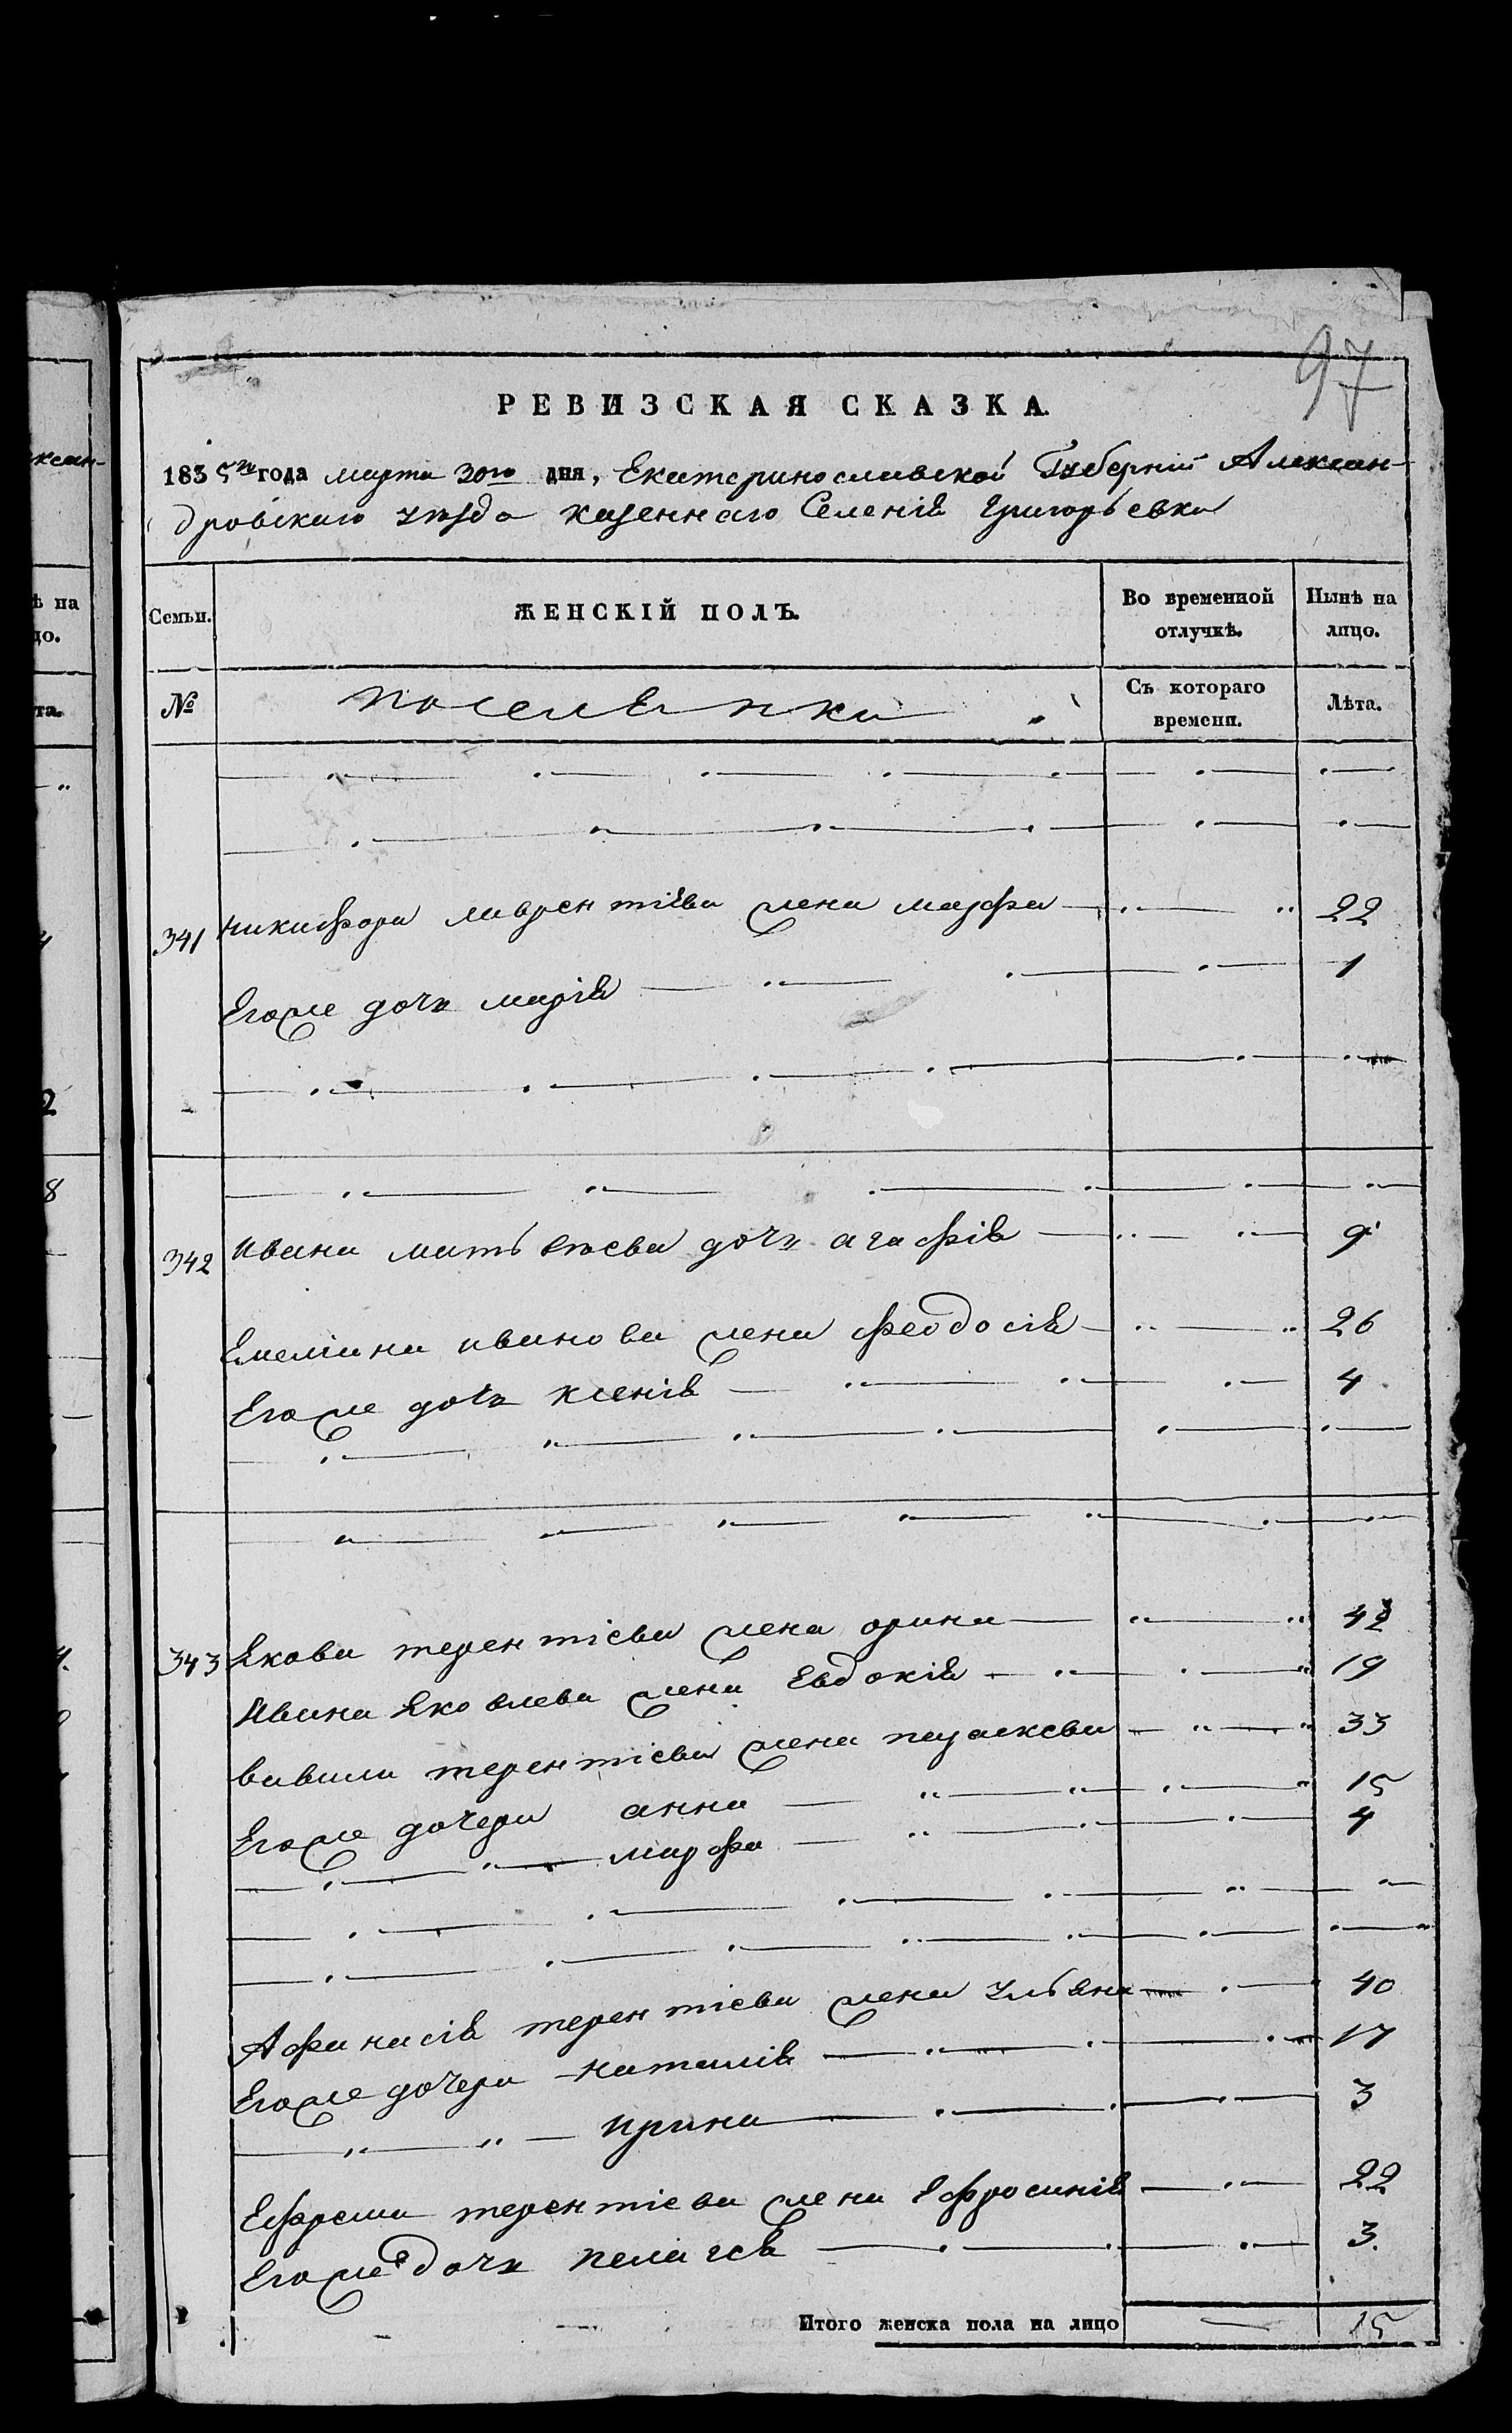 97
РЕВИЗСКАЯ СКАЗКА.
1835го года марта 30го дня, Екатеринославской Губерніи Алексан-
дровскаго уѣзда казеннаго Селенія Григорьевки
Семьи. ЖЕНСКІЙ ПОЛЪ. Во временной отлучкѣ. Нынѣ на лицо.
№ поселянки Съ котораго времени. Лѣта.
341 Никифора лаврентіева жена марфа 22
Егоже дочь марія 1
342 Ивана матвѣева дочь агафія 9
Емеліана иванова жена феодосія 26
Егоже дочь ксенія 4
343 Якова терентіева жена орина
Ивана Яковлева жена Евдокія 19
вавилы терентіева жена параскева 33
Егоже дочери анна 15
марфа 4
Афанасія терентіева жена Ульяна 40
Егоже дочери наталія 17
ирина 3
Ефрема терентіева жена Ефросинія 22
Егоже дочь пелагея 3.
Итого женска пола на лицо 15